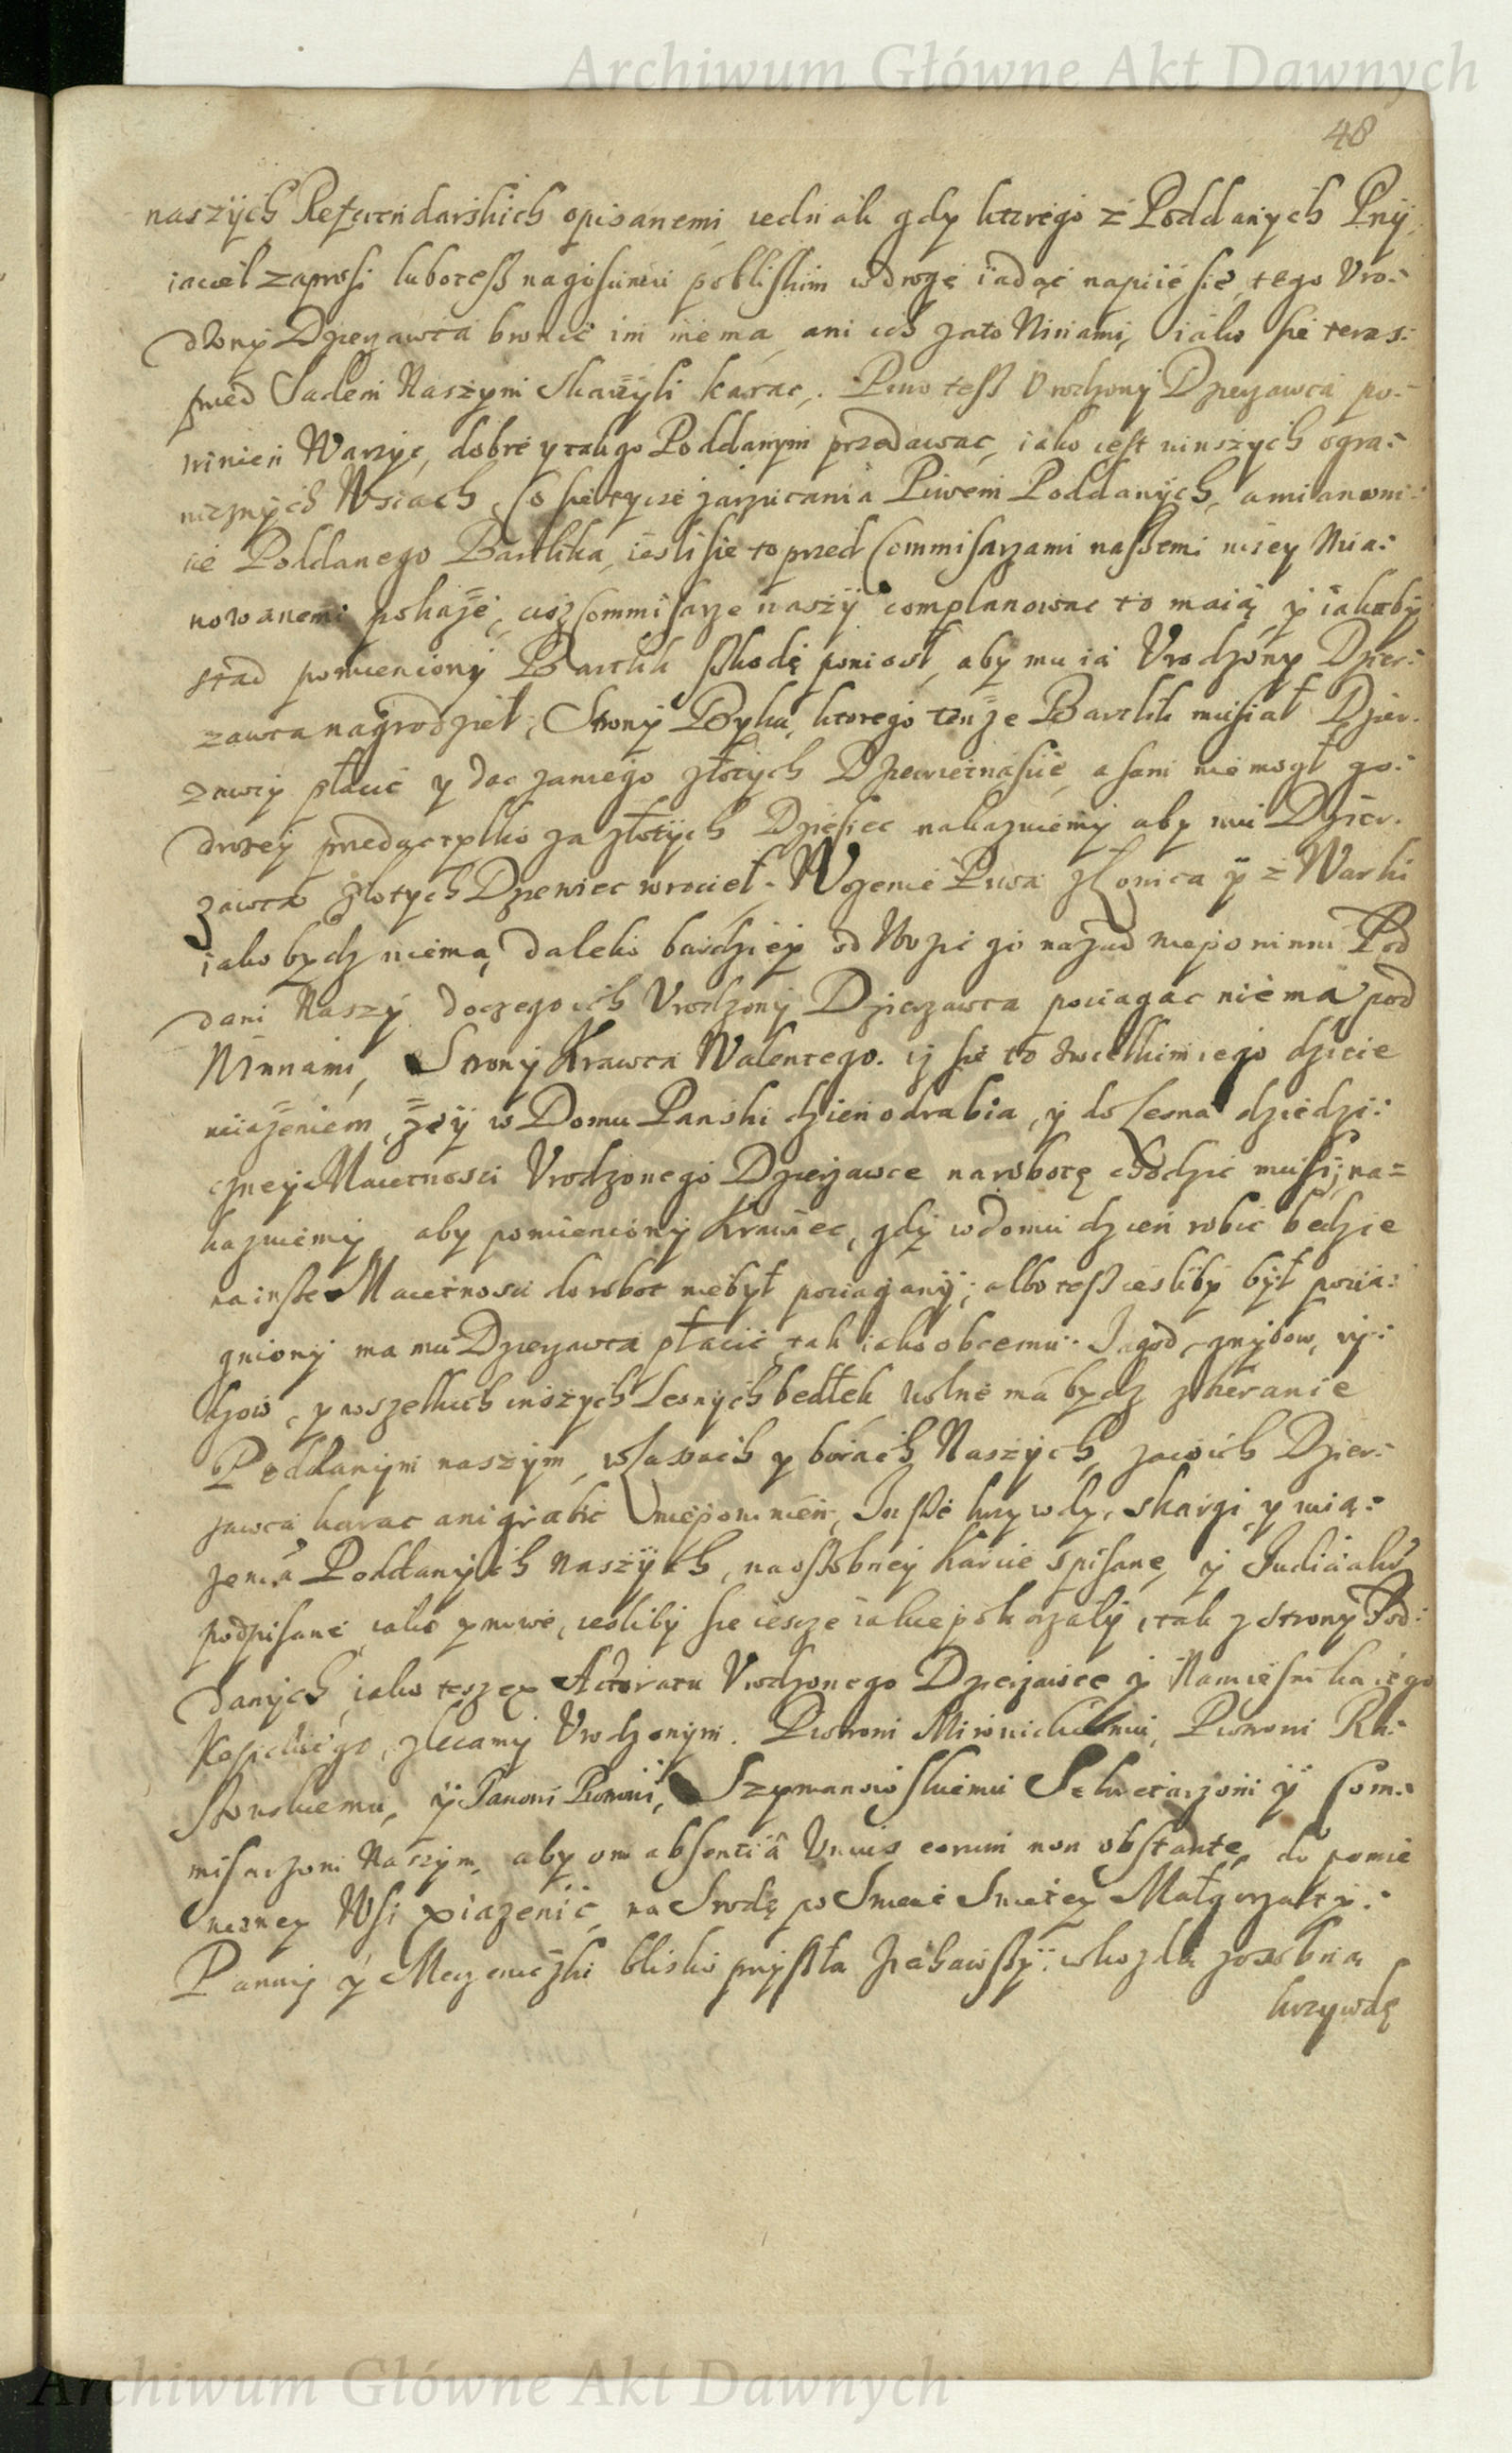 Archiwum Główne Akt Dawnych
48
naszych Referendarskich opisanemi iednak gdy ktorego z Poddanych Przy
iaciel zaprosi lubo tesz na gościncu pobliskim w drogę iadąc napiie sie, tego Vro-
dzony Dzierzawca bronic im niema, ani ich zato Winami, iako sie teras
przed Sadem Naszym skarzyli karac. Piwo tesz Vrodzony Dzierzawca po-
winien Warzyc, dobre y takgo Poddanym przedawac, iako iest w inszych ogra-
nicznych Wsiach, Co sie tycze zarzucania Piwem Poddanych, a mianowi-
cie Poddanego Bartlika, iesli sie to przed Commisarzami naszemi nizey Mia-
nowanemi pokaze, cisz Commisarze naszy complanowac to maią, y iakoby
stad pomieniony Bartlik szkodę poniosł, aby mu ią Vrodzony Dzier-
zawca nagrodzieł, Strony Byka, ktorego tenze Bartlik musiał Dzier-
zawcy płacic y dac zaniego złotych Dziewietnascie, a sam niemogł go
drozey przedac tylko za złotych Dziesiec nakazuiemy aby mu Dzier-
zawca złotych Dziewiec wrocieł. Wozenie Piwa z Conica y z Warki
iako bydz niema, daleko bardziey odwozic go nazad niepowinni Pod
dani Naszy doczego ich Vrodzony Dzierzawca pociagac niema pod
Winnami, Strony Krawca Walentego. iz sie to zwielkim iego dzieie
uciązeniem, ze y w Domu Panski dzien odrabia, y do Lesna dziedzi-
czney Maietnosci Vrodzonego Dzierzawce na robotę chodzic musi; na-
kazuiemy aby pomieniony Krawiec, gdy w domu dzien robic bedzie
na insze Maietnosci do robot niebył pociagany; albo tesz iesliby był pocią-
gniony ma mu Dzierzawca płacic tak iako obcemu. Iagod, grzybow, ry-
dzow, y wszelkich inszych Lesnych bedłek wolne ma bydz zbieranie
Poddanym naszym, w Lasach y borach Naszych, za co ich Dzier-
zawca karac ani grabic niepowinien, Insze krzywdy, skargi y ucią-
zenia Poddanych Naszych, na osobney karcie spisane, y Iudicialiter
podpisane, iako y nowe, iesliby sie iescze iakie pokazały, tak z strony Pod-
danych, iako tesz ex Actoratu Vrodzonego Dzierzawce y Namiesnika iego
zlecamy Vrodzonym. Piotrowi Piotrowi
y Panowi Szymanowskiemu Sekretarzowi y Com-
misarzowi Naszym, aby oni absentiâ Vnius eorum non obstante, do pomie
nioney Wsi Xiązenic, na Srodę po Swięcie Swiętey Małgorzaty
Panny y Męczeniczki blisko przyszła ziechawszy, wkozdą zosobna
krzywdę
Archiwum Główne Akt Dawnych